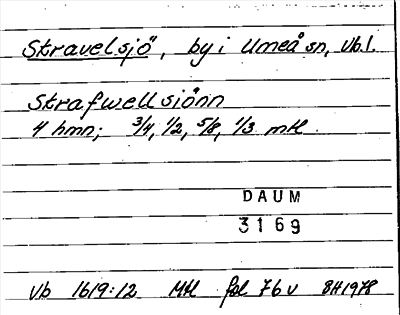 Stravelsjö, by i Umeå sn, Vb l.
Strafwellsiönn
4 hmn; 3/4, 1/2, 5/8, 1/3 mtl
DAUM
3169
Vb 1619:12 Mtl fol 76v BH 1978